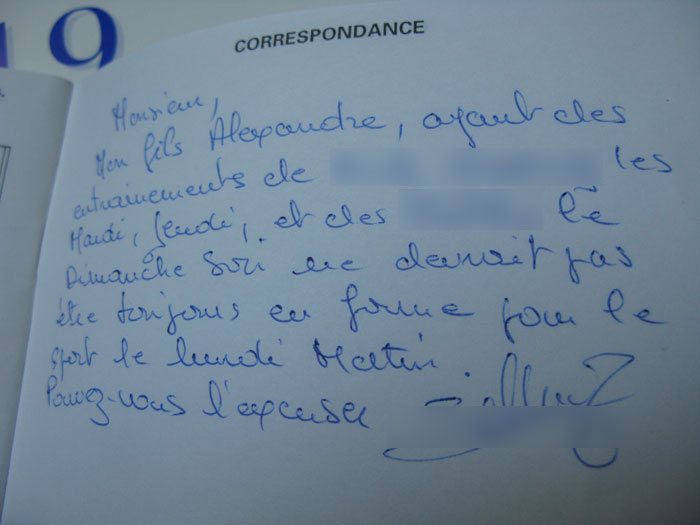 19
CORRESPONDANCE
Monsieur,
Mon fils Alexandre, ayant des
entrainements de les
Mardi, Jeudi, et des le
Dimanche Soir ne devrait pas
être toujours en forme pour le
sport le lundi Matin
Pouvez-vous l'excuser